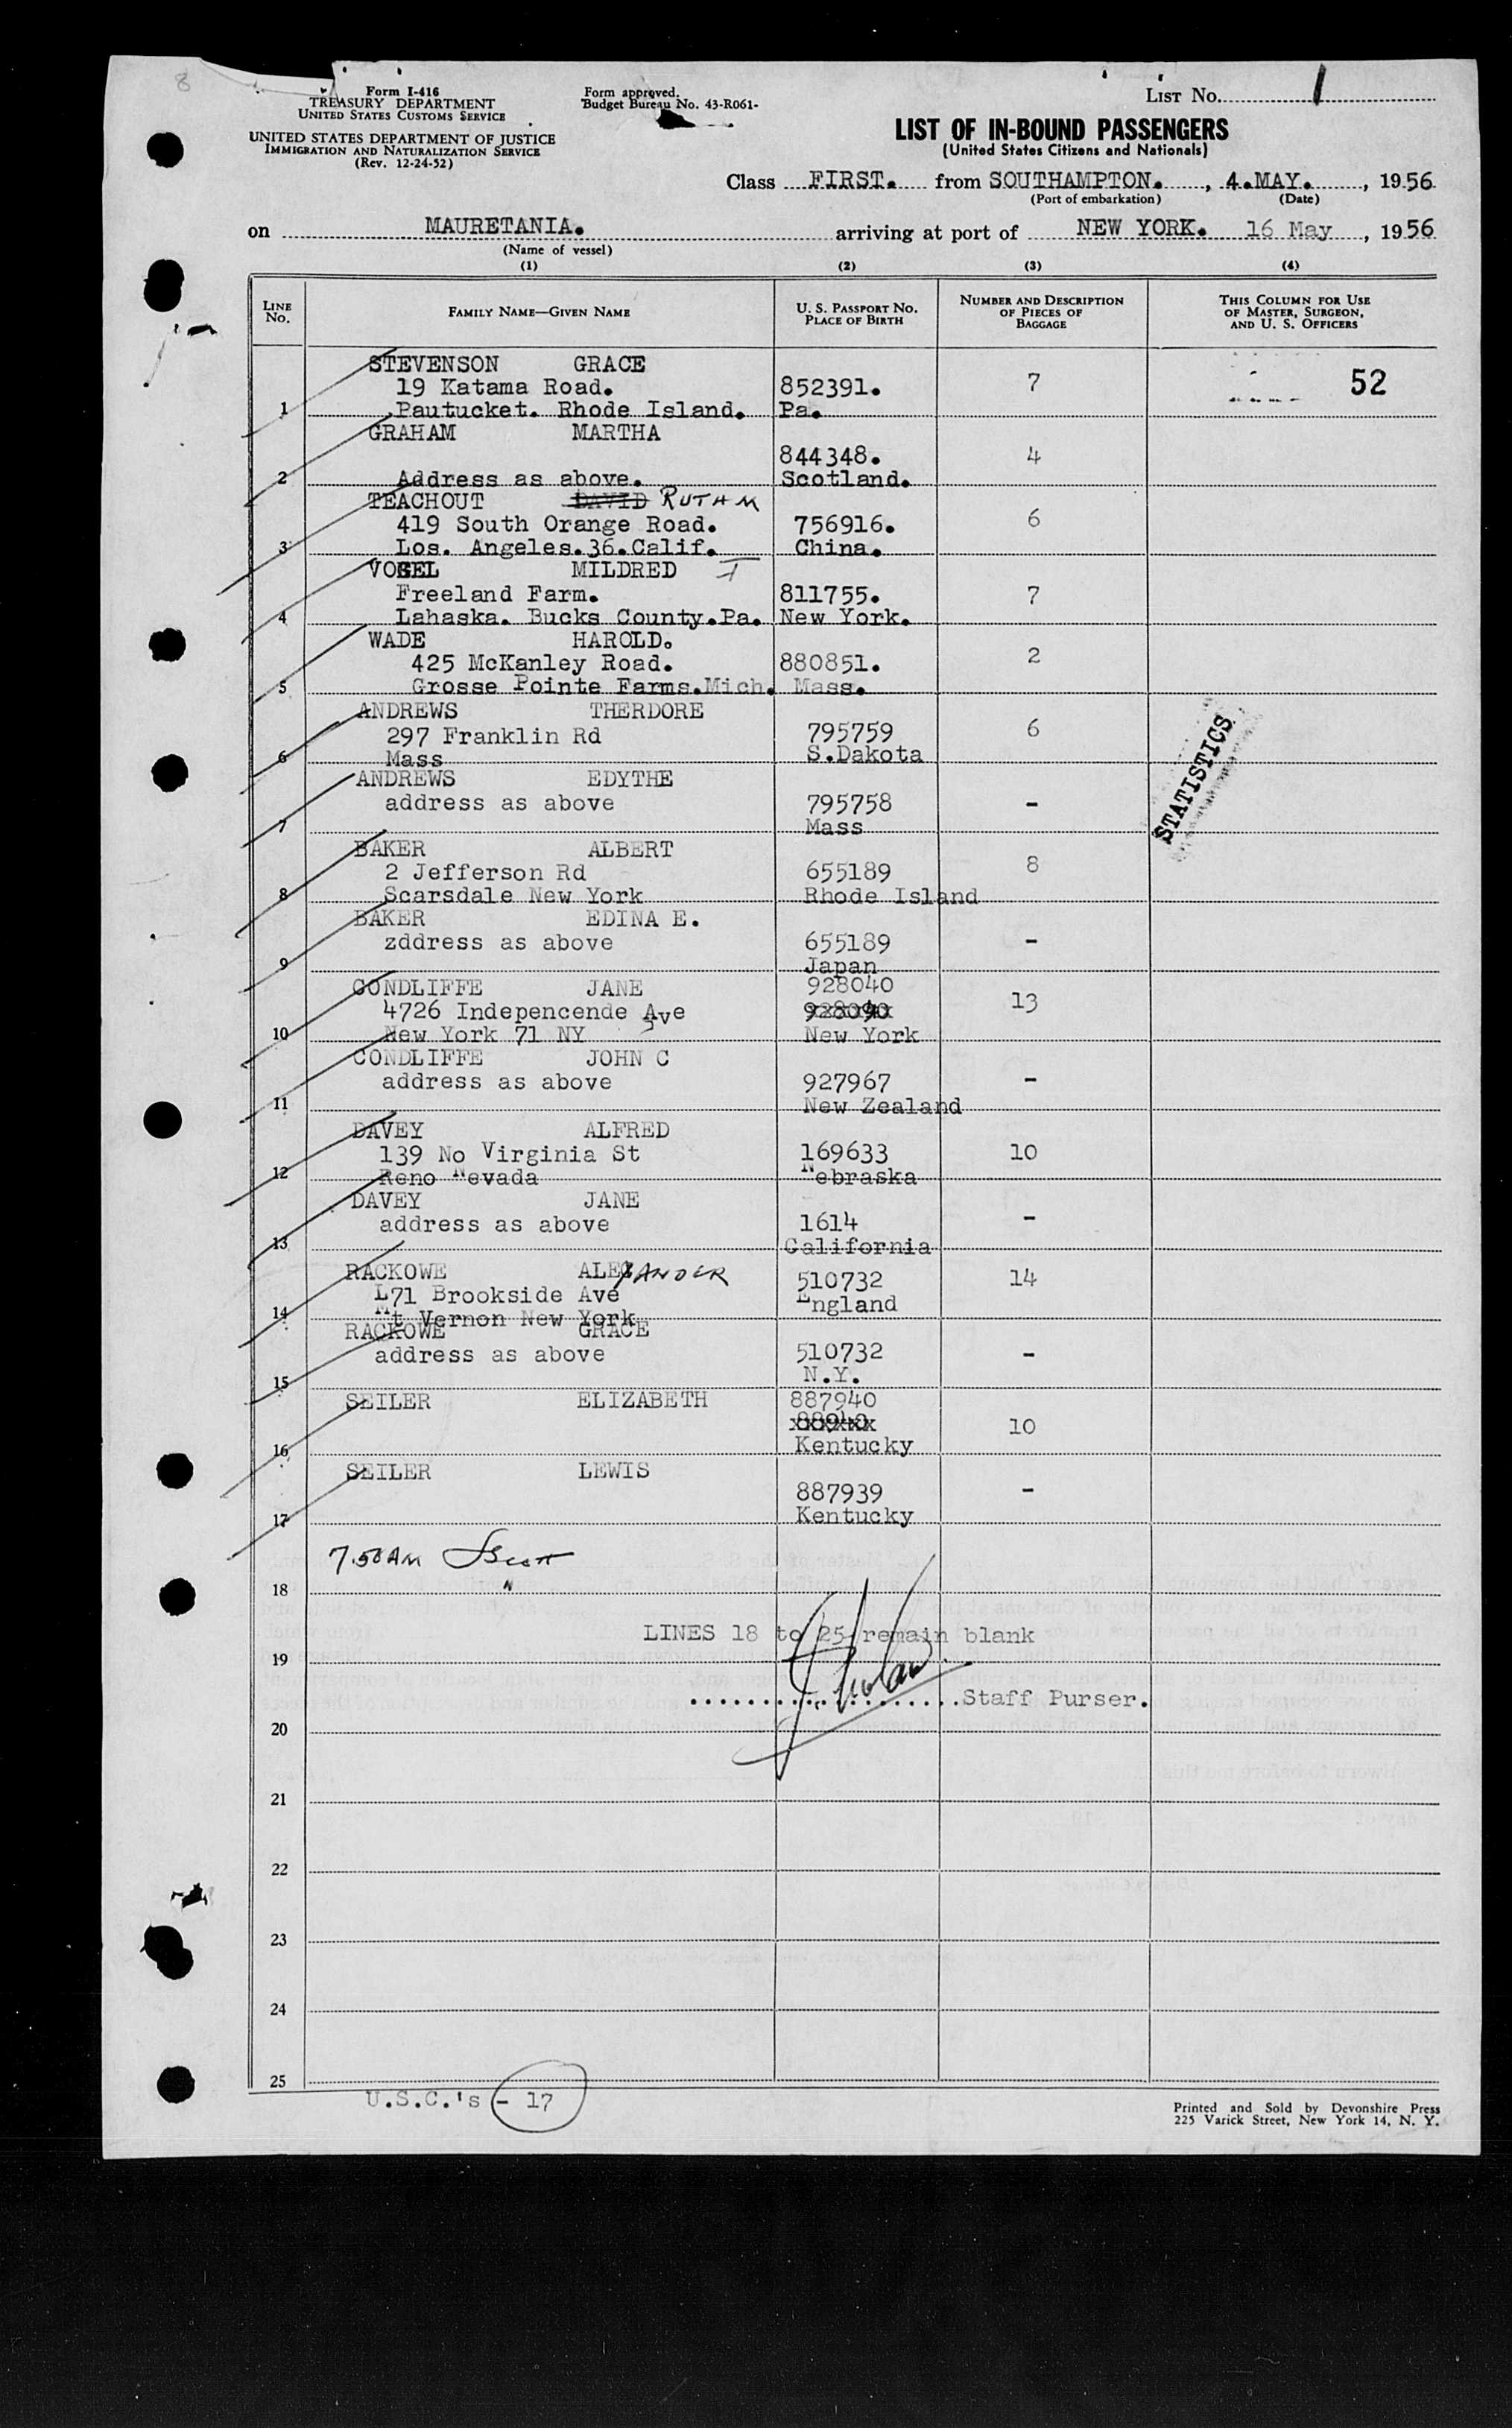 8
Form I-416
TREASURY DEPARTMENT
UNITED STATES CUSTOMS SERVICE
UNITED STATES DEPARTMENT OF JUSTICE
IMMIGRATION AND NATURALIZATION SERVICE
(Rev. 12-24-52)
Form approved.
Budget Bureau No. 43-R061-
LIST No. 1
LIST OF IN-BOUND PASSENGERS
(United States Citizens and Nationals)
Class FIRST. from SOUTHAMPTON. , 4.MAY. , 1956
(Port of embarkation) (Date)
on MAURETANIA. arriving at port of NEW YORK. 16 May , 1956
(Name of vessel)
(1) (2) (3) (4)
LINE No. FAMILY NAME—GIVEN NAME U. S. PASSPORT NO. PLACE OF BIRTH NUMBER AND DESCRIPTION OF PIECES OF BAGGAGE THIS COLUMN FOR USE OF MASTER, SURGEON, AND U. S. OFFICERS
STEVENSON GRACE
19 Katama Road. 852391. 7 52
1 Pautucket. Rhode Island. Pa.
GRAHAM MARTHA
844348. 4
2 Address as above. Scotland.
TEACHOUT DAVID RUTH M
419 South Orange Road. 756916. 6
3 Los. Angeles.36.Calif. China.
VOGEL MILDRED I
Freeland Farm. 811755. 7
4 Lahaska. Bucks County.Pa. New York.
WADE HAROLD.
425 McKanley Road. 880851. 2
5 Grosse Pointe Farms.Mich. Mass.
ANDREWS THERDORE
297 Franklin Rd 795759 6
6 Mass S.Dakota
STATISTICS
ANDREWS EDYTHE
address as above 795758 -
7 Mass
BAKER ALBERT
2 Jefferson Rd 655189 8
8 Scarsdale New York Rhode Island
BAKER EDINA E.
zddress as above 655189 -
9 Japan
CONDLIFFE JANE 928040
4726 Indepencende Ave 928090 13
10 New York 71 NY New York
CONDLIFFE JOHN C
address as above 927967 -
11 New Zealand
DAVEY ALFRED
139 No Virginia St 169633 10
12 Reno Nevada Nebraska
DAVEY JANE
address as above 1614 -
13 California
RACKOWE ALEXANDER
L71 Brookside Ave 510732 14
14 Mt Vernon New York England
RACKOWE GRACE
address as above 510732 -
15 N.Y.
SEILER ELIZABETH 887940
88940 10
16 Kentucky
SEILER LEWIS
887939 -
17 Kentucky
7.50AM Scott
18 "
LINES 18 to 25 remain blank
19
Staff Purser.
20
21
22
23
24
25
U.S.C.'s - 17
Printed and Sold by Devonshire Press
225 Varick Street, New York 14, N. Y.